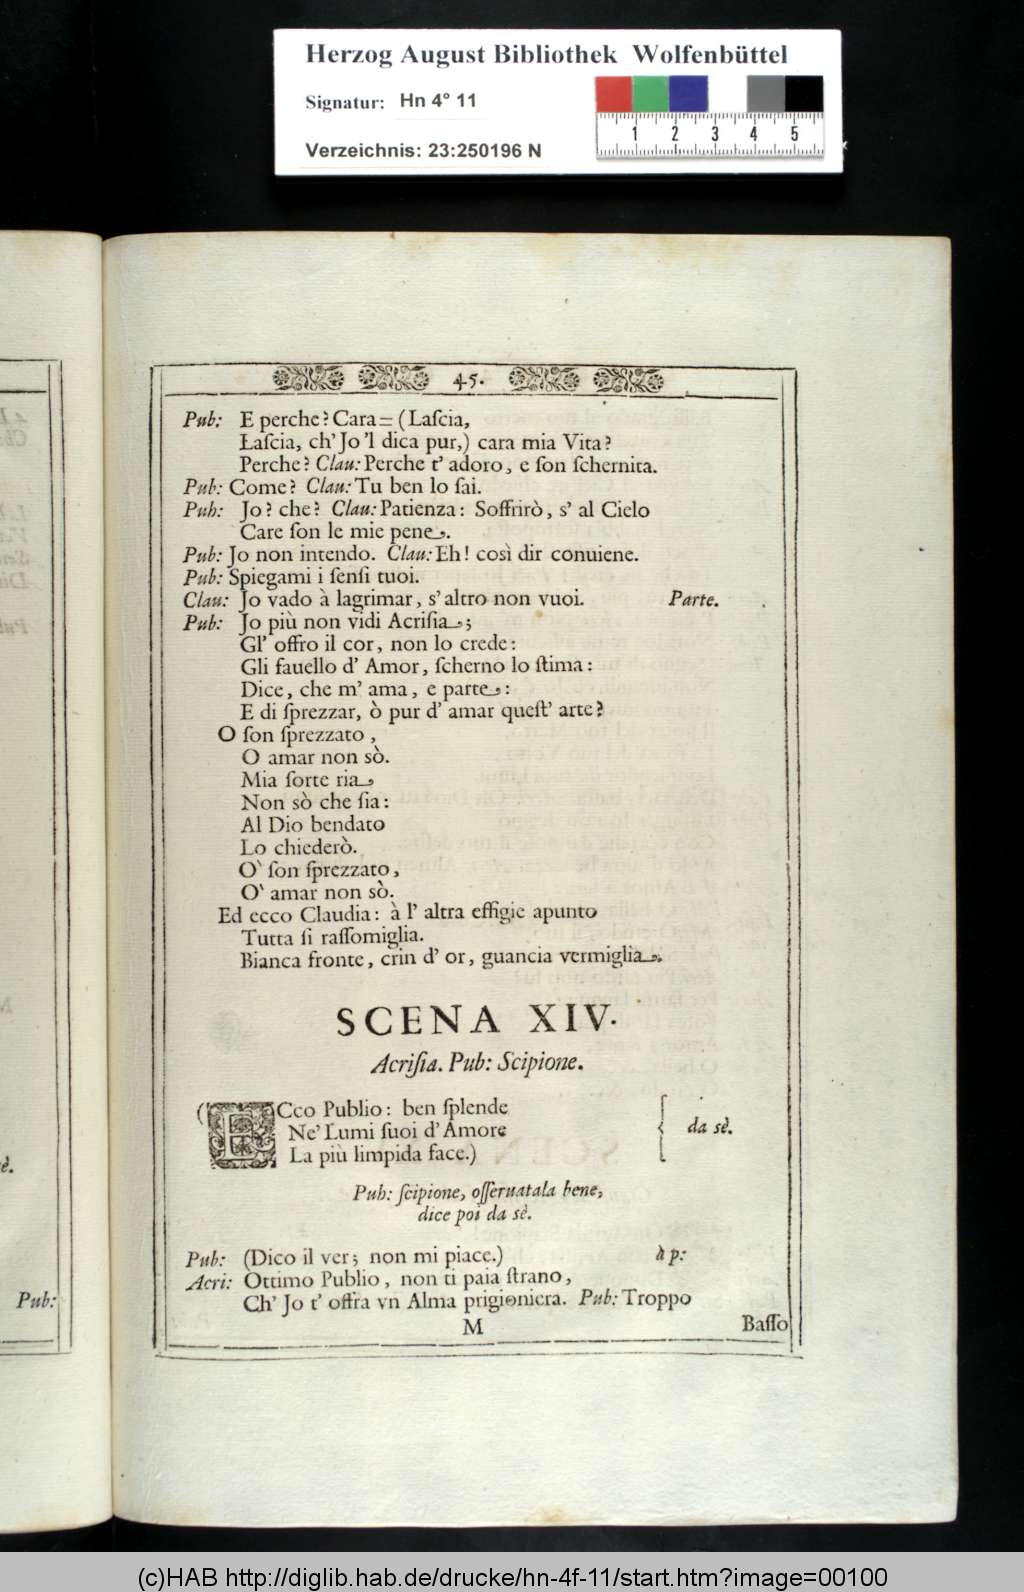 Herzog August Bibliothek Wolfenbüttel
Signatur: Hn 4° 11
Verzeichnis: 23:250196 N
1 2 3 4 5
45.
Pub: E perche? Cara= (Laſcia,
Laſcia, ch' Jo 'l dica pur,) cara mia Vita?
Perche? Clau: Perche t' adoro, e ſon ſchernita.
Pub: Come? Clau: Tu ben lo ſai.
Pub: Jo? che? Clau: Patienza: Soffrirò, s' al Cielo
Care ſon le mie pene.
Pub: Jo non intendo. Clau: Eh! così dir conuiene.
Pub: Spiegami i ſenſi tuoi.
Clau: Jo vado à lagrimar, s' altro non vuoi. Parte.
Pub: Jo più non vidi Acriſia;
Gl' offro il cor, non lo crede:
Gli fauello d' Amor, ſcherno lo ſtima:
Dice, che m' ama, e parte:
E di ſprezzar, ò pur d' amar queſt' arte?
O ſon ſprezzato,
O amar non sò.
Mia ſorte ria
Non sò che ſia:
Al Dio bendato
Lo chiederò.
O' ſon ſprezzato,
O' amar non sò.
Ed ecco Claudia: à l' altra effigie apunto
Tutta ſi raſſomiglia.
Bianca fronte, crin d' or, guancia vermiglia.
SCENA XIV.
Acriſia. Pub: Scipione.
(ECco Publio: ben ſplende
Ne' Lumi ſuoi d' Amore
La più limpida face.) da sè.
Pub: ſcipione, oſſeruatala bene,
dice poi da sè.
Pub: (Dico il ver; non mi piace.) à p:
Acri: Ottimo Publio, non ti paia ſtrano,
Ch' Jo t' offra vn Alma prigioniera. Pub: Troppo
M
Baſſo
Pub:
è.
(c)HAB http://diglib.hab.de/drucke/hn-4f-11/start.htm?image=00100